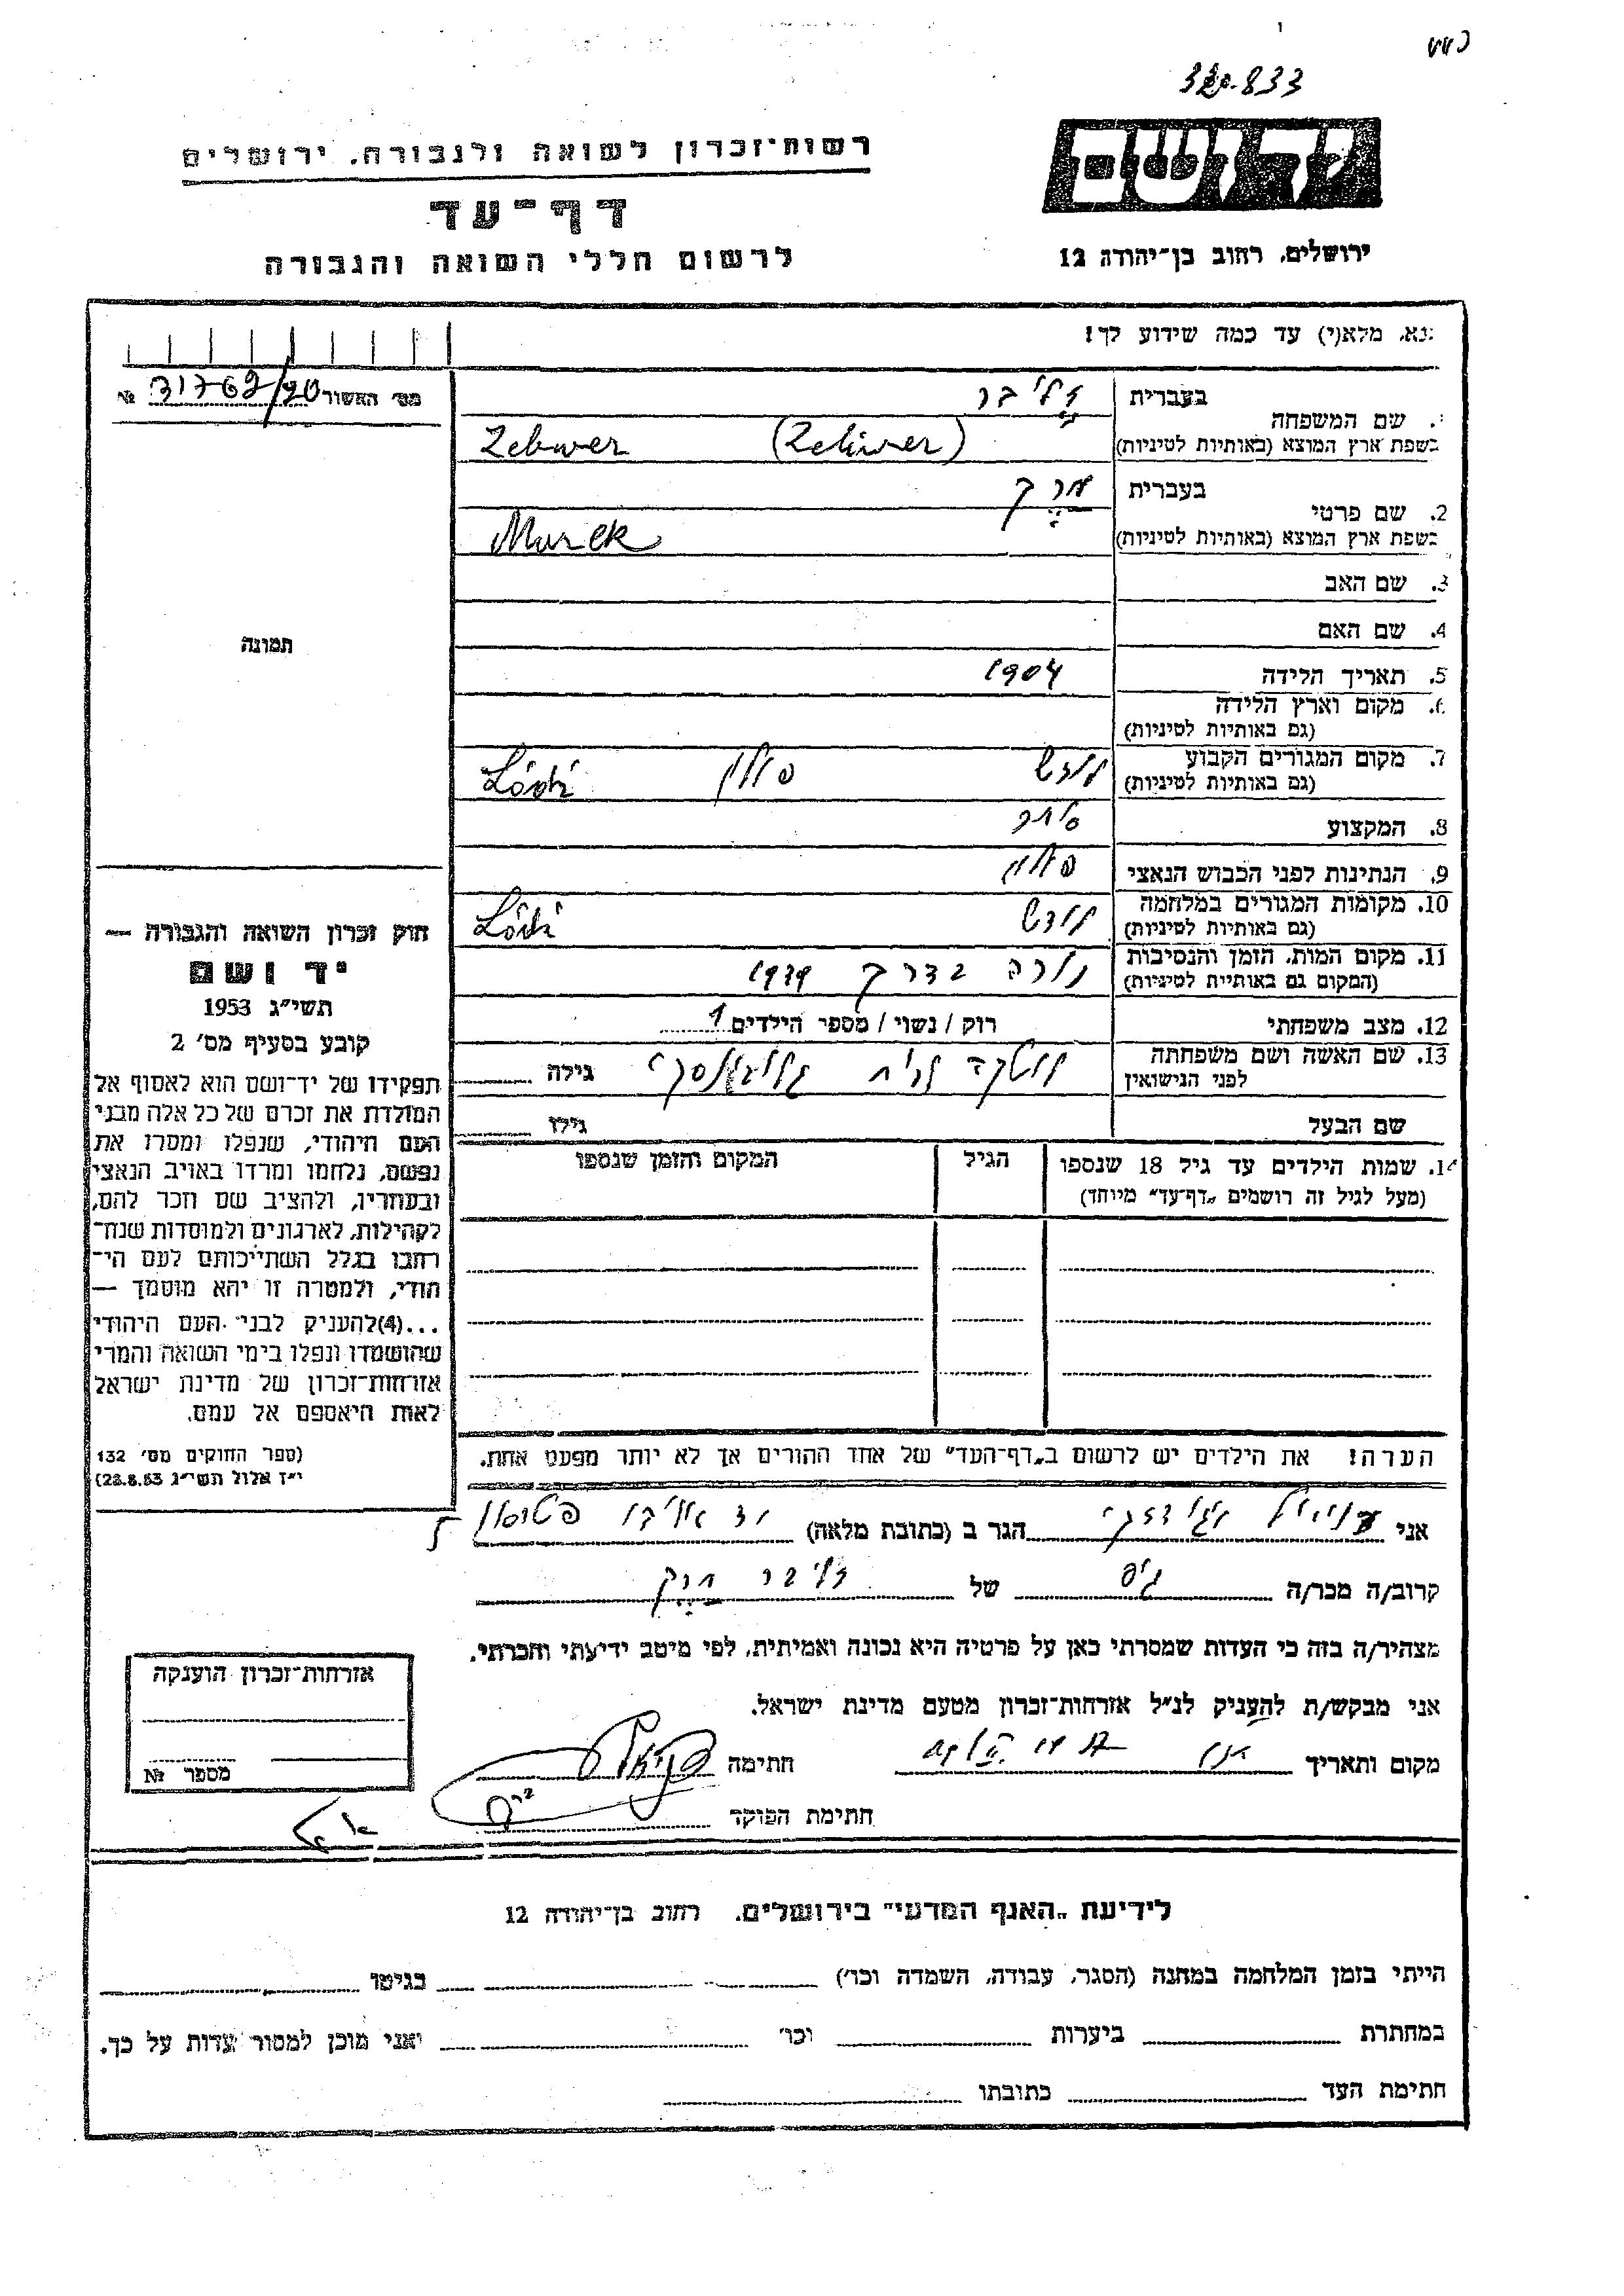 320.833
רשות-זכרון לשואה ולגבורה. ירושלים
דף-עד
לרשום חללי השואה והגבורה
ידושם
ירושלים. רחוב בן-יהודה 12
נא. מלא(י) עד כמה שידוע לך!
מס' האשור 31762/20 №
1. שם המשפחה
בעברית
בשפת ארץ המוצא (באותיות לטיניות) Zeliwer (Zeliwer)
2. שם פרטי
בעברית מרק
בשפת ארץ המוצא (באותיות לטיניות) Marek
3. שם האב
4. שם האם
5. תאריך הלידה 1904
6. מקום וארץ הלידה
(גם באותיות לטיניות)
7. מקום המגורים הקבוע לודש פולין Łódź
(גם באותיות לטיניות)
8. המקצוע סוחר
9. הנתינות לפני הכבוש הנאצי פולין
10. מקומות המגורים במלחמה לודש Łódź
(גם באותיות לטיניות)
11. מקום המות. הזמן והנסיבות נורה בדרך 1939
(המקום גם באותיות לטיניות)
12. מצב משפחתי רוק / נשוי / מספר הילדים 1
13. שם האשה ושם משפחתה
לפני הנישואין גילה
שם הבעל גילו
14. שמות הילדים עד גיל 18 שנספו
(מעל לגיל זה רושמים „דף-עד" מיוחד)
הגיל
המקום והזמן שנספו
הערה! את הילדים יש לרשום ב„דף-העד" של אחד ההורים אך לא יותר מפעם אחת.
תמונה
חוק זכרון השואה והגבורה —
יד ושם
תשי"ג 1953
קובע בסעיף מס' 2
תפקידו של יד-ושם הוא לאסוף אל
המולדת את זכרם של כל אלה מבני
העם היהודי, שנפלו ומסרו את
נפשם, נלחמו ומרדו באויב הנאצי
ובעוזריו, ולהציב שם וזכר להם,
לקהילות, לארגונים ולמוסדות שנח-
רבו בגלל השתייכותם לעם הי-
הודי, ולמטרה זו יהא מוסמך —
...(4)להעניק לבני העם היהודי
שהושמדו ונפלו בימי השואה והמרי
אזרחות-זכרון של מדינת ישראל
לאות היאספם אל עמם.
(ספר החוקים מס' 132
י"ז אלול תשי"ג 28.8.53)
אני הגר ב (כתובת מלאה)
קרוב/ה מכר/ה גיס של מרק
מצהיר/ה בזה כי העדות שמסרתי כאן על פרטיה היא נכונה ואמיתית, לפי מיטב ידיעתי והכרתי.
אני מבקש/ת להעניק לנ"ל אזרחות-זכרון מטעם מדינת ישראל.
מקום ותאריך חתימה
חתימת הפוקד
אזרחות-זכרון הוענקה
מספר №
לידיעת „האגף המדעי" בירושלים. רחוב בן-יהודה 12
הייתי בזמן המלחמה במחנה (הסגר, עבודה, השמדה וכו') בגיטו
במחתרת ביערות וכו' ואני מוכן למסור עדות על כך.
חתימת העד כתובתו